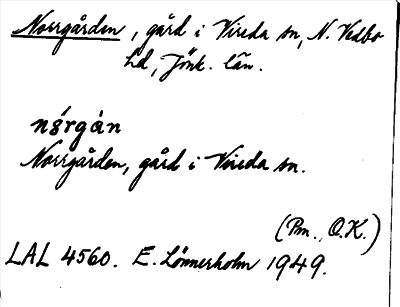 Norrgården, gård i Vireda sn, N. Vedbo
hd, Jönk. län.
nǿrgán
Norrgården, gård i Vireda sn.
(Pm., O.K.)
LAL 4560. E. Lönnerholm 1949.